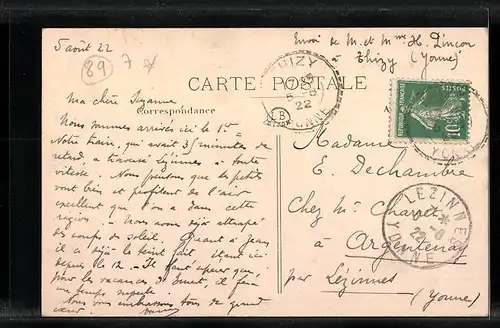 5 août 22
89
7
Envoi de M. et Mme H. Pinçon
à Thizy (Yonne)
CARTE POSTALE
Correspondance
THIZY
22
YONNE
LB
POSTES
10
RÉPUBLIQUE FRANÇAISE
YO
Ma chère Suzanne
Nous sommes arrivés ici le 1er
Notre train, qui avait 35 minutes de
retard, a traversé Lézinnes à toute
vitesse. Nous pensons que les petits
vont bien et profitent de l'air
excellent que l'on a dans cette
région. Nous avons déjà attrapé
des coups de soleil. Quant à Jean
il a déjà le teint fait étant ici
depuis le 12. Il faut espérer que,
pour les vacances, il fera
un temps superbe
Nous vous embrassons tous de grand
cœur.
Madame
E. Dechambre
Chez Mr Charvet
à
Argentenay
par Lézinnes
(Yonne)
LEZINNES
22
YONNE